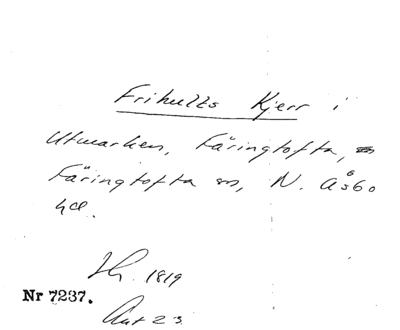 Frihults Kjerr i
Utmarken, Färingtofta,
Färingtofta sn, N. Åsbo
hd.
1819
Nr 7237.
Akt 23